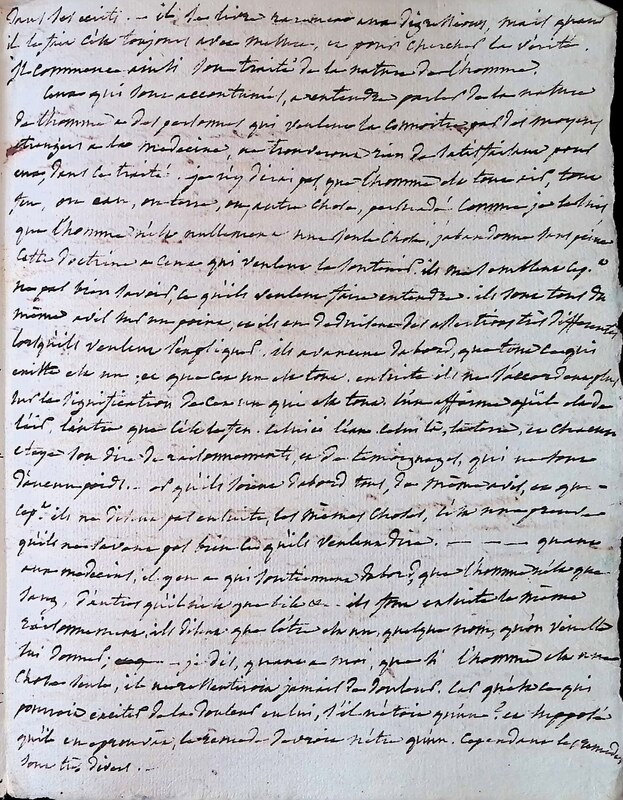 dans ses écrits. - il se livre rarement aux digressions, mais quand
il le fait c'est toujours avec mesure, et pour chercher la vérité.
Il commence ainsi son traité de la nature de l'homme.
Ceux qui sont accoutumés, a entendre parler de la nature
de l'homme a des personnes qui veulent la connoitre par des moyens
etrangers a la médecine, ne trouveront rien de satisfaisant pour
eux, dans ce traité. je n'y dirai pas, que l'homme est tout air, tout
feu, ou eau, ou terre, ou autre chose, persuadé comme je le suis
que l'homme n'est nullement une seule chose, j'abandonne sans peine
cette doctrine a ceux qui veulent la soutenir. ils me semblent cep.t
ne pas bien savoir, ce qu'ils veulent faire entendre. ils sont tous du
même avis sur un point, et ils en déduisent des assertions très différentes
lorsqu'ils veulent s'expliquer. ils avancent d'abord, que tout ce qui
existe est un, et que cet un est tout. ensuite ils ne s'accordent plus
sur la signification de cet un qui est tout. L'un affirme qu'il est de
l'air, l'autre que c'est le feu. celui ci l'eau. celui là, la terre, et chacun
etaye son dire de raisonnements, et de temoignages, qui ne sont
d'aucun poids. - et qu'ils soient d'abord tous, du même avis, et que -
cep.t ils ne disent pas ensuite, les mêmes choses, c'est une preuve
qu'ils ne savent pas bien ce qu'ils veulent dire. - - - quant
aux médecins, il y en a qui soutiennent d'abord, que l'homme n'est que
sang, d'autres qu'il n'est que bile &c - ils font ensuite le même
raisonnement, ils disent que l'être est un, quelque nom, qu'on veuille
lui donner, - je dis, quant a moi, que si l'homme est une
chose seule, il ne ressentiroit jamais de douleur. Car qu'est ce qui
pourroit exciter de la douleur en lui, s'il n'étoit qu'un? et supposé
qu'il en eprouvât, le remède devroit n'être qu'un. Cependant les remèdes
sont très divers. -